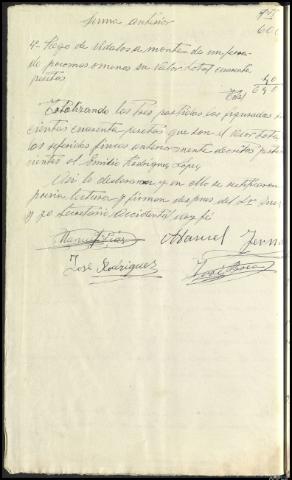 suma anterior 600
4º Pago de Vidalos de montia de
de poco mas o menos su valor total cuarenta
pesetas 40
640
Totalizando las tres partidas las figuradas
cientas cuarenta pesetas que son el valor total
las referidas fincas anteriormente descritas
cientes al Emilio Rodriguez López
Asi lo declararon y en ello se ratificaron
previa lectura y firman despues del Sr. Juez
y yo Secretario accidental doy fé
Manuel Manuel
José Rodriguez